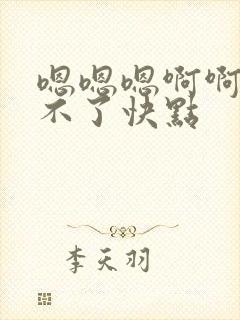 嗯嗯嗯啊啊
不了快點
李天羽